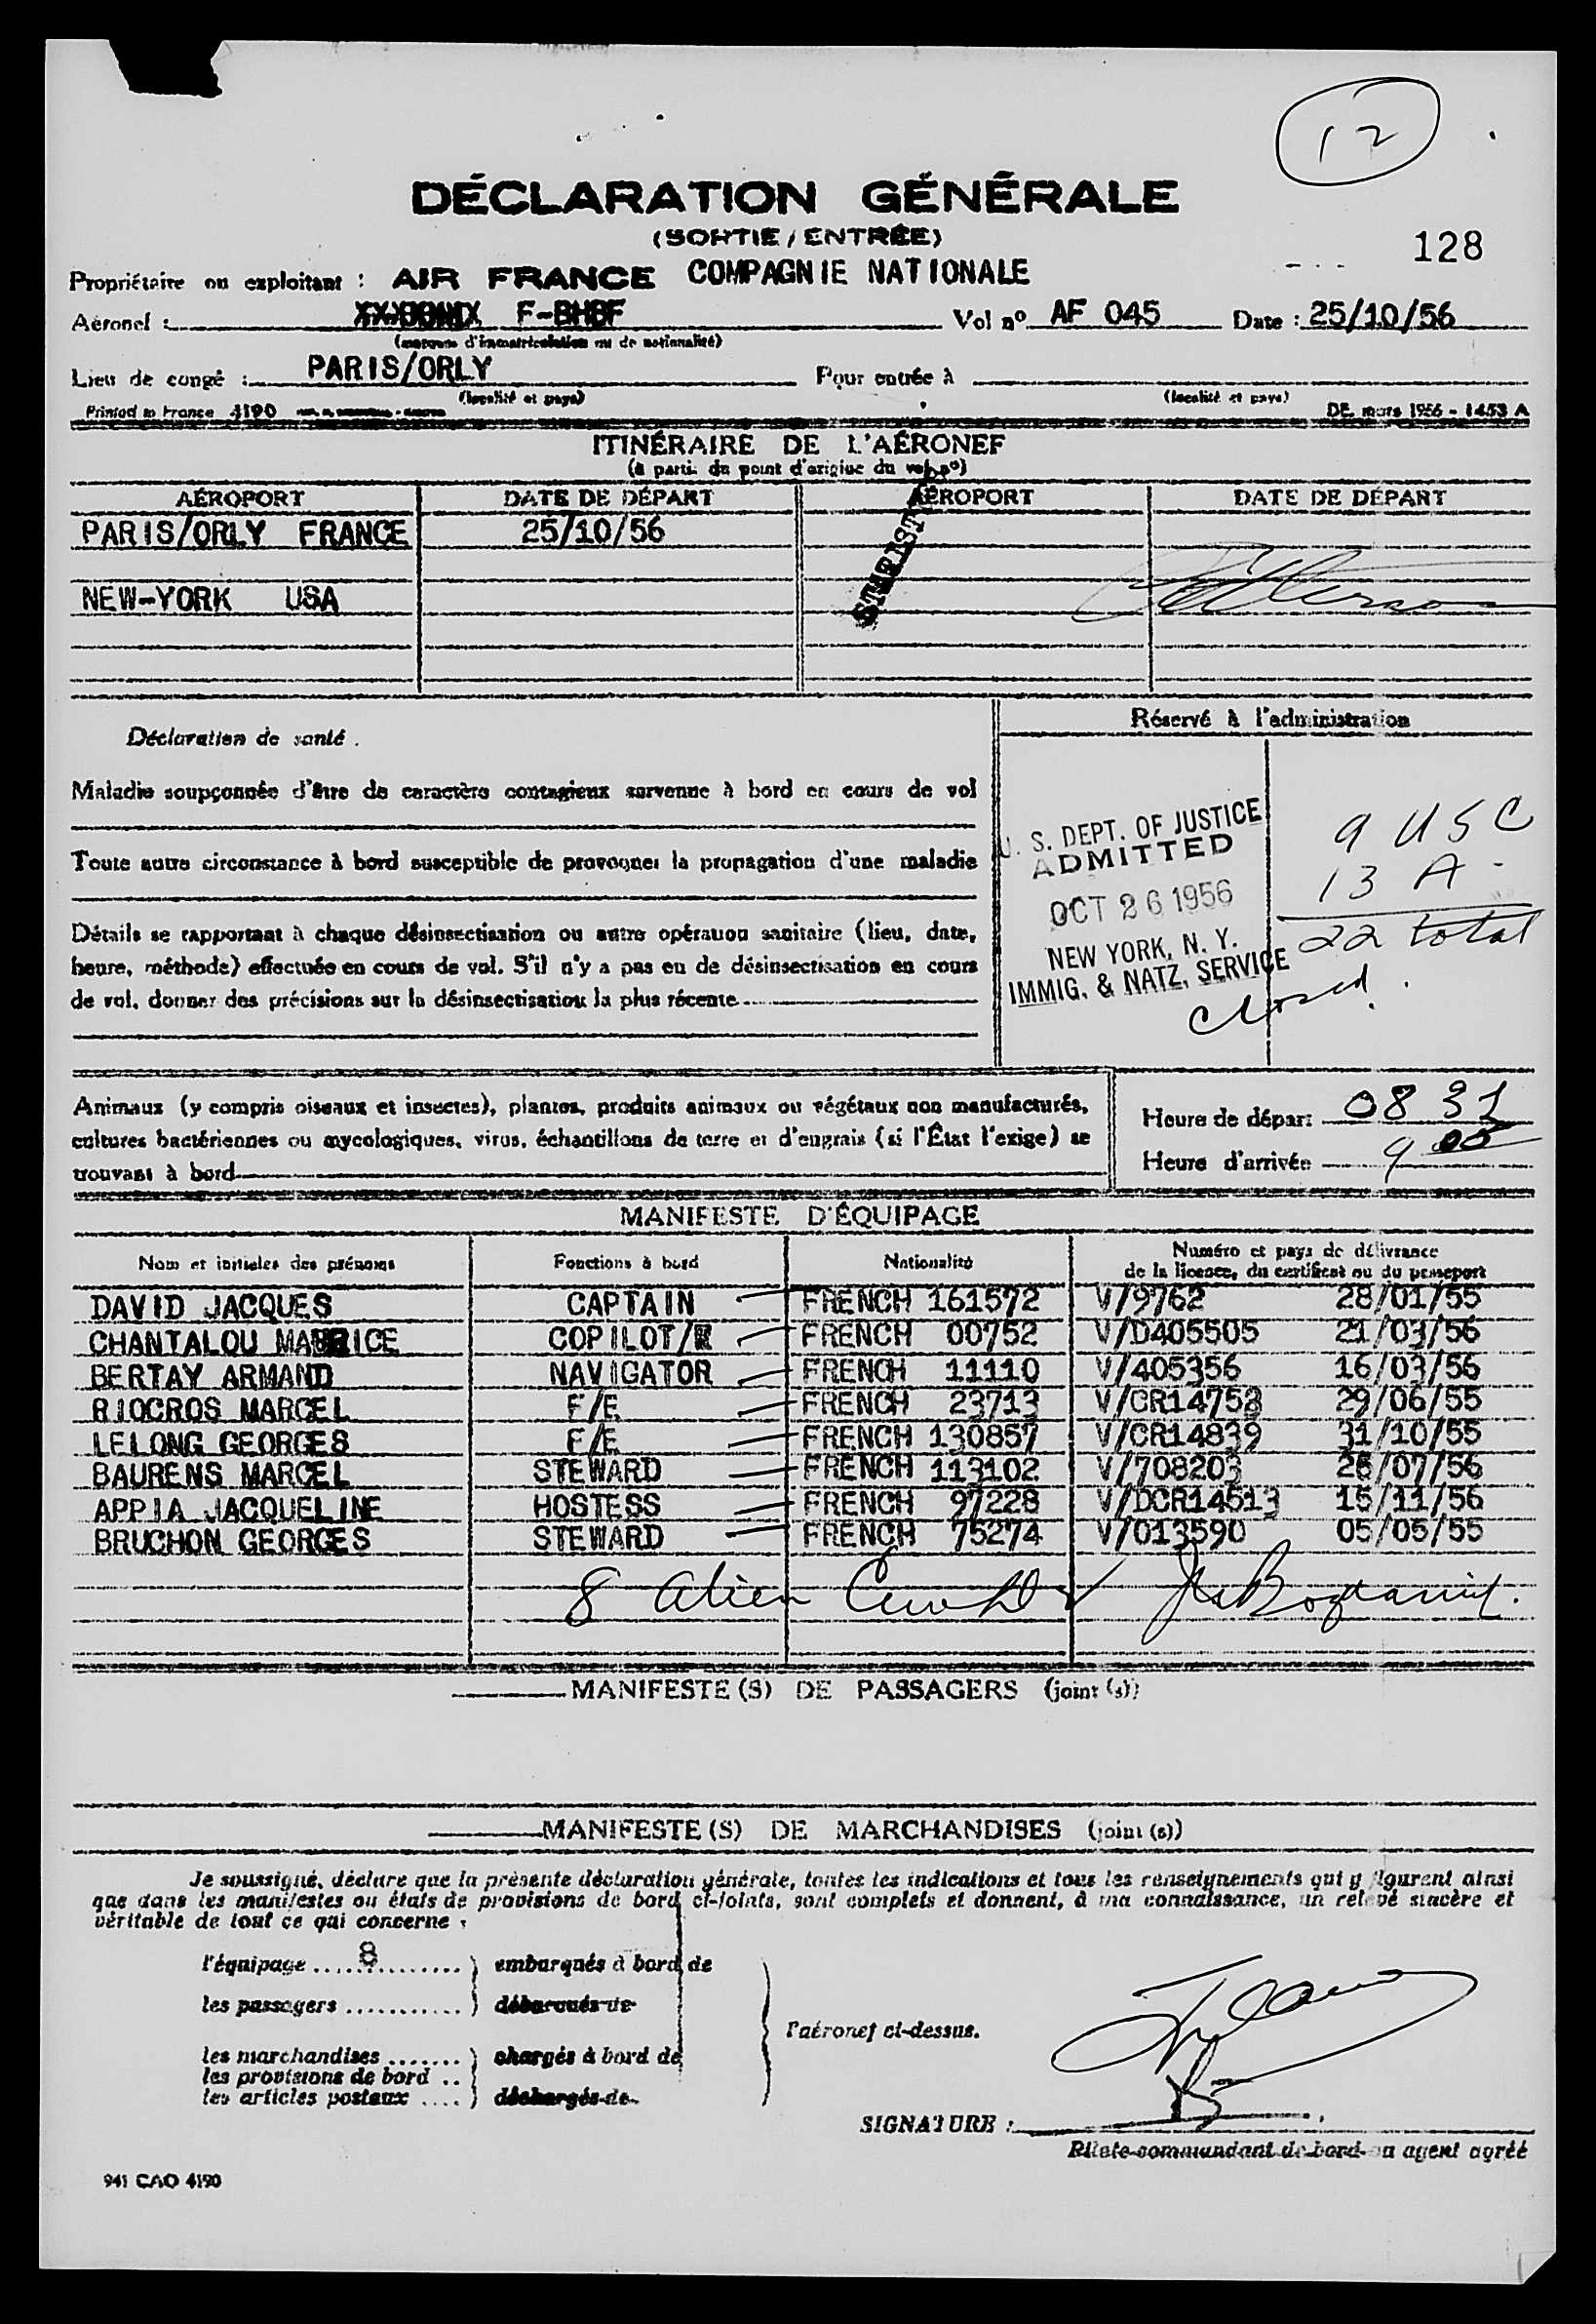 12
DÉCLARATION GÉNÉRALE
(SORTIE / ENTRÉE)
128
Propriétaire ou exploitant : AIR FRANCE COMPAGNIE NATIONALE
Aéronef : F-BHBF Vol nº AF 045 Date : 25/10/56
(marques d'immatriculation ou de nationalité)
Lieu de congé : PARIS/ORLY Pour entrée à
(localité et pays) (localité et pays)
Printed in France 4190 DE. mars 1956 - 1453 A
ITINÉRAIRE DE L'AÉRONEF
(à partir du point d'origine du vol nº)
AÉROPORT DATE DE DÉPART AÉROPORT DATE DE DÉPART
PARIS/ORLY FRANCE 25/10/56
NEW-YORK USA
Réservé à l'administration
Déclaration de santé .
Maladie soupçonnée d'être de caractère contagieux survenue à bord en cours de vol
Toute autre circonstance à bord susceptible de provoquer la propagation d'une maladie
Détails se rapportant à chaque désinsectisation ou autre opération sanitaire (lieu, date,
heure, méthode) effectuée en cours de vol. S'il n'y a pas eu de désinsectisation en cours
de vol, donner des précisions sur la désinsectisation la plus récente
U. S. DEPT. OF JUSTICE
ADMITTED
OCT 26 1956
NEW YORK, N. Y.
IMMIG. & NATZ. SERVICE
9 USC
13 A -
22 total
closed.
Animaux (y compris oiseaux et insectes), plantes, produits animaux ou végétaux non manufacturés,
cultures bactériennes ou mycologiques, virus, échantillons de terre et d'engrais (si l'État l'exige) se
trouvant à bord
Heure de départ 08 31
Heure d'arrivée 9 00
MANIFESTE D'ÉQUIPAGE
Nom et initiales des prénoms Fonctions à bord Nationalité Numéro et pays de délivrance
de la licence, du certificat ou du passeport
DAVID JACQUES CAPTAIN FRENCH 161572 V/9762 28/01/55
CHANTALOU MAURICE COPILOT/ FRENCH 00752 V/D405505 21/03/56
BERTAY ARMAND NAVIGATOR FRENCH 11110 V/405356 16/03/56
RIOCROS MARCEL F/E FRENCH 23713 V/CR14758 29/06/55
LELONG GEORGES F/E FRENCH 130857 V/CR14839 31/10/55
BAURENS MARCEL STEWARD FRENCH 113102 V/708203 26/07/56
APPIA JACQUELINE HOSTESS FRENCH 97228 V/DCR14513 15/11/56
BRUCHON GEORGES STEWARD FRENCH 75274 V/013590 05/05/55
8 Alien Crew
MANIFESTE(S) DE PASSAGERS (joint (s))
MANIFESTE(S) DE MARCHANDISES (joint (s))
Je soussigné, déclare que la présente déclaration générale, toutes les indications et tous les renseignements qui y figurent ainsi
que dans les manifestes ou états de provisions de bord ci-joints, sont complets et donnent, à ma connaissance, un relevé sincère et
véritable de tout ce qui concerne :
l'équipage ....8.......... embarqués à bord de
les passagers ............ débarqués de
l'aéronef ci-dessus.
les marchandises ....... chargés à bord de
les provisions de bord ..
les articles postaux .... déchargés de
SIGNATURE :
Pilote commandant de bord ou agent agréé
941 CAO 4190